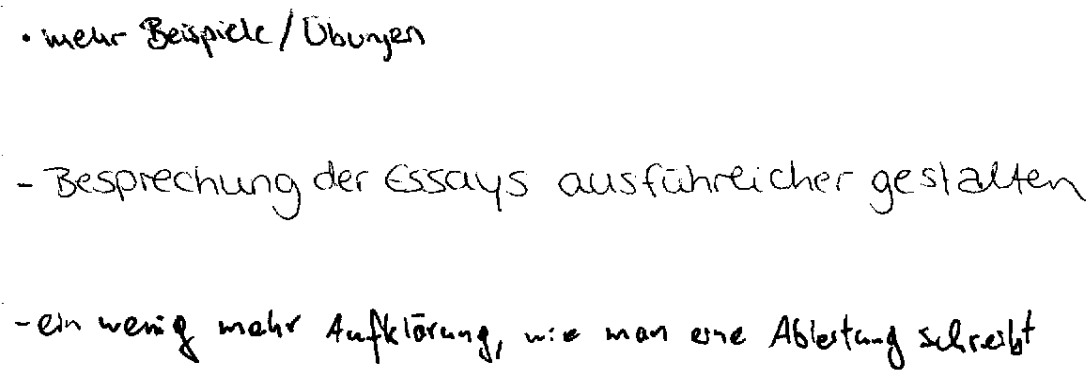 · mehr Beispiele / Übungen
- Besprechung der Essays ausführlicher gestalten
- ein wenig mehr Aufklärung, wie man eine Ableitung schreibt